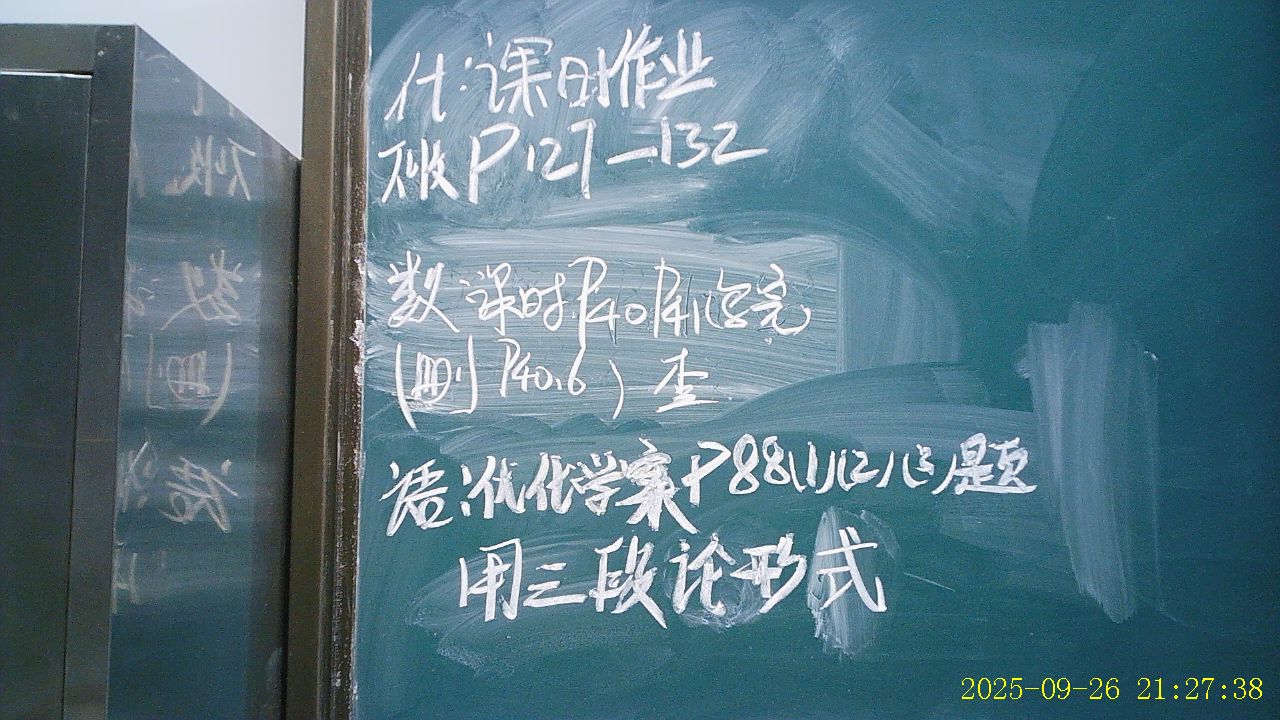 什:课时作业
不收P127-132
数 课时P40 P41写完
(删P40.6) 查
语:优化学案P88(1)(2)(3)题
用三段论形式
2025-09-26 21:27:38